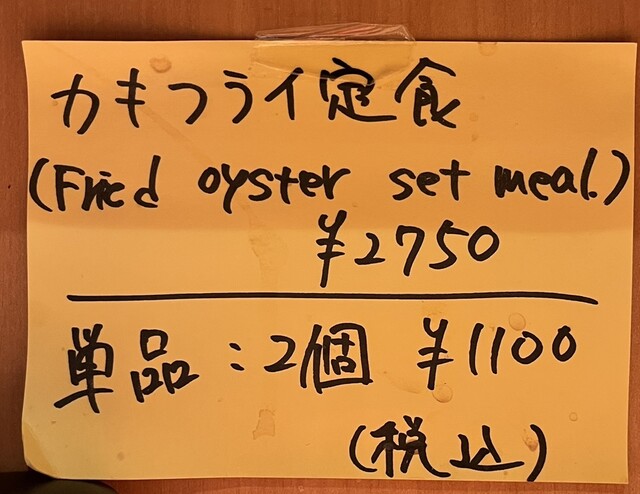 カキフライ定食
(Fried oyster set meal.)
¥2750
単品:2個 ¥1100
(税込)